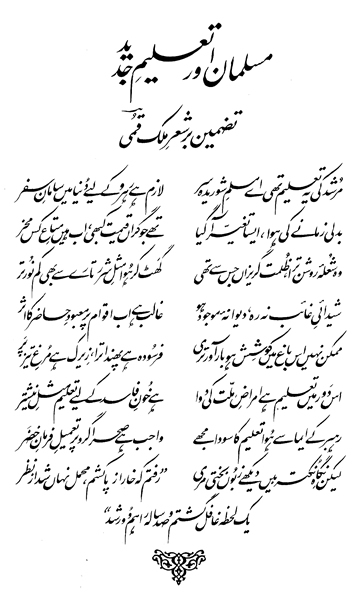 مسلمان اور تعلیمِ جدید
تضمین بر شعرِ ملک قمی
مرشد کی یہ تعلیم تھی اے مسلمِ شوریدہ سر
لازم ہے رہرو کے لیے دُنیا میں سامانِ سفر
بدلی زمانے کی ہوا، ایسا تغیر آگیا
تھے جو گراں قیمت کبھی، اب ہیں متاعِ کس مخر
وہ شعلۂ روشن ترا، ظلمت گریزاں جس سے تھی
گھٹ کر ہُوا مثلِ شرر تارے سے بھی کم نُورتر
شیدائیِ غائب نہ رہ، دیوانۂ موجود ہو
غالب ہے اب اقوام پر معبودِ حاضر کا اثر
ممکن نہیں اس باغ میں کوشش ہو بارآور تری
فرسودہ ہے پھندا ترا، زیرک ہے مُرغِ تیز پر
اس دور میں تعلیم ہے امراضِ ملّت کی دوا
ہے خُونِ فاسد کے لیے تعلیم مثلِ نیشتر
رہبر کے ایما سے ہُوا تعلیم کا سودا مجھے
واجب ہے صحرا گرد پر تعمیلِ فرمانِ خضَر
لیکن نگاہِ نکتہ بیں دیکھے زبوں بختی مری
”رفتم کہ خار از پا کشم، محمل نہاں شد از نظر
یک لحظہ غافل گشتم و صد سالہ راہم دُور شد“